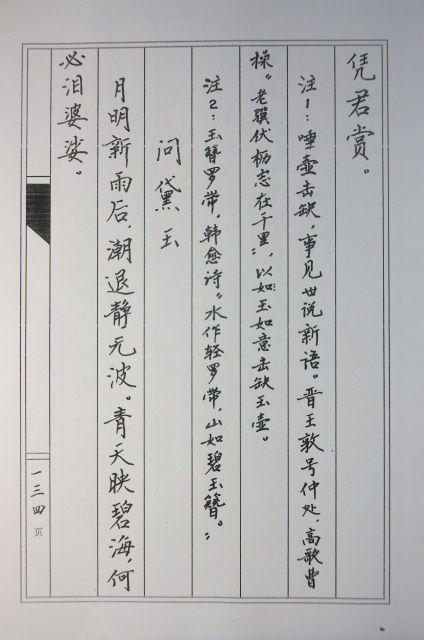 凭君赏。
注1：唾壶击缺，事见世说新语。晋王敦号仲处，高歌曹
操“老骥伏枥志在千里”，以如玉如意击缺玉壶。
注2：玉簪罗带，韩愈诗“水作轻罗带，山如碧玉簪。”
问黛玉
月明新雨后，潮退静无波。青天映碧海，何
必泪婆娑。
一三四页